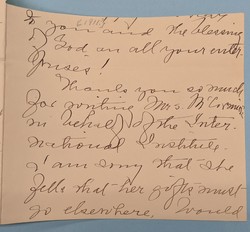 to you and the blessing
of God on all your enter-
prises!
Thank you so much
for writing Mrs. McCormick
in behalf of the Inter-
national Institute.
I am sorry that she
feels that her gifts must
go elsewhere. Would